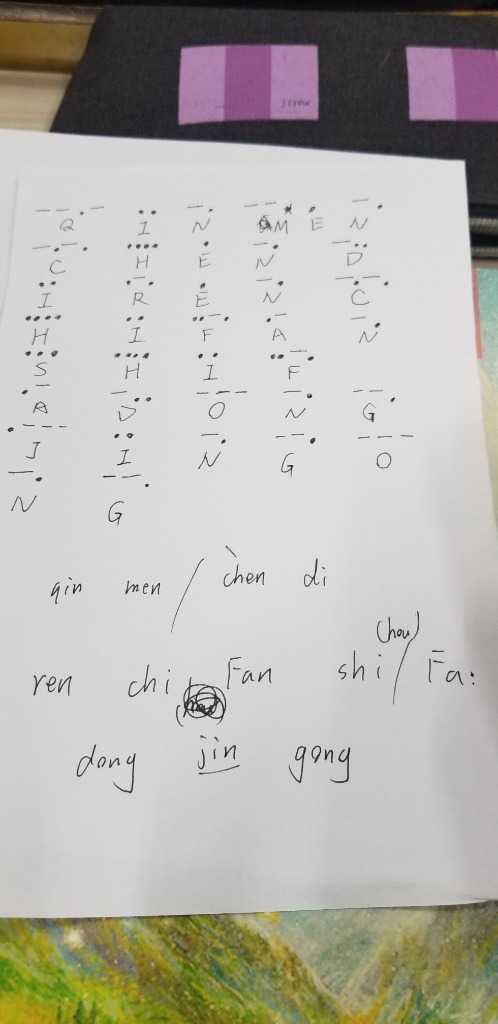 --.- .. -. -- . -.
Q I N M E N
-.-. .... . -. -..
C H E N D
.. .-. . -. -.-.
I R E N C
.... .. ..-. .- -.
H I F A N
... .... .. ..-.
S H I F
.- -.. --- -. --.
A D O N G
.--- .. -. --. ---
J I N G O
-. --.
N G
qin men / chen di
(hou)
ren chi Fan shi / Fa:
dong jin gong